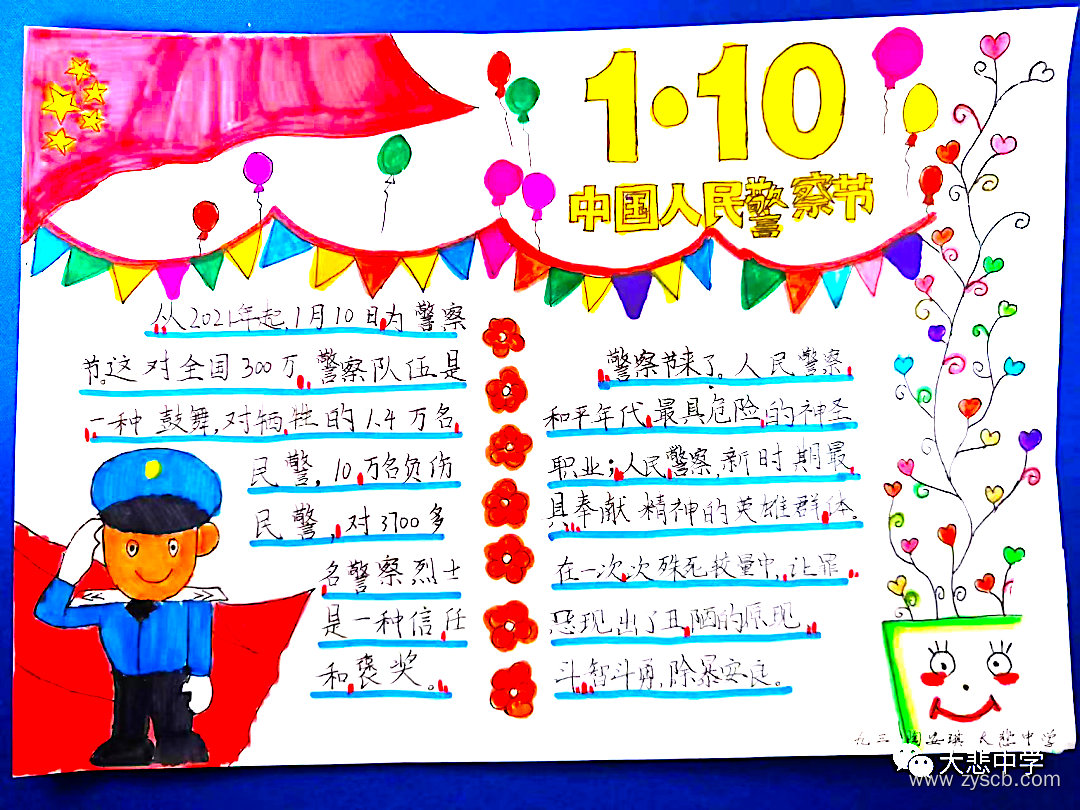 1·10
中国人民警察节
从2021年起,1月10日为警察
节。这对全国300万,警察队伍是
一种鼓舞,对牺牲的1.4万名
民警,10万名负伤
民警,对3700多
名警察烈士
是一种信任
和褒奖。
警察节来了。人民警察,
和平年代,最具危险的神圣
职业;人民警察,新时期最
具奉献精神的英雄群体。
在一次次殊死较量中,让罪
恶现出了丑陋的原现,
斗智斗勇,除暴安良。
九三 陶安琪 大悲中学
大悲中学
www.zyscb.com